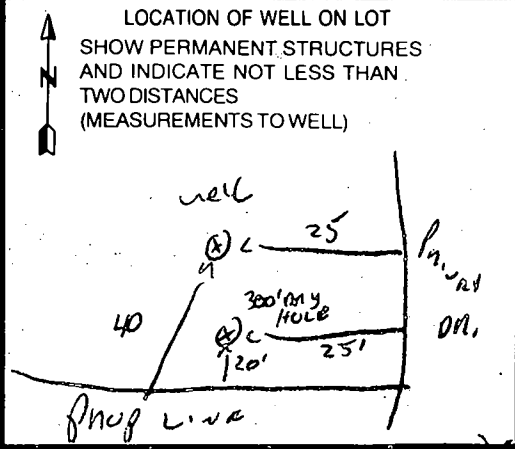 LOCATION OF WELL ON LOT
SHOW PERMANENT STRUCTURES
AND INDICATE NOT LESS THAN
TWO DISTANCES
(MEASUREMENTS TO WELL)
N
well
25
Private
300' DRY
HOLE
40
DR.
25'
20'
PROP LINE